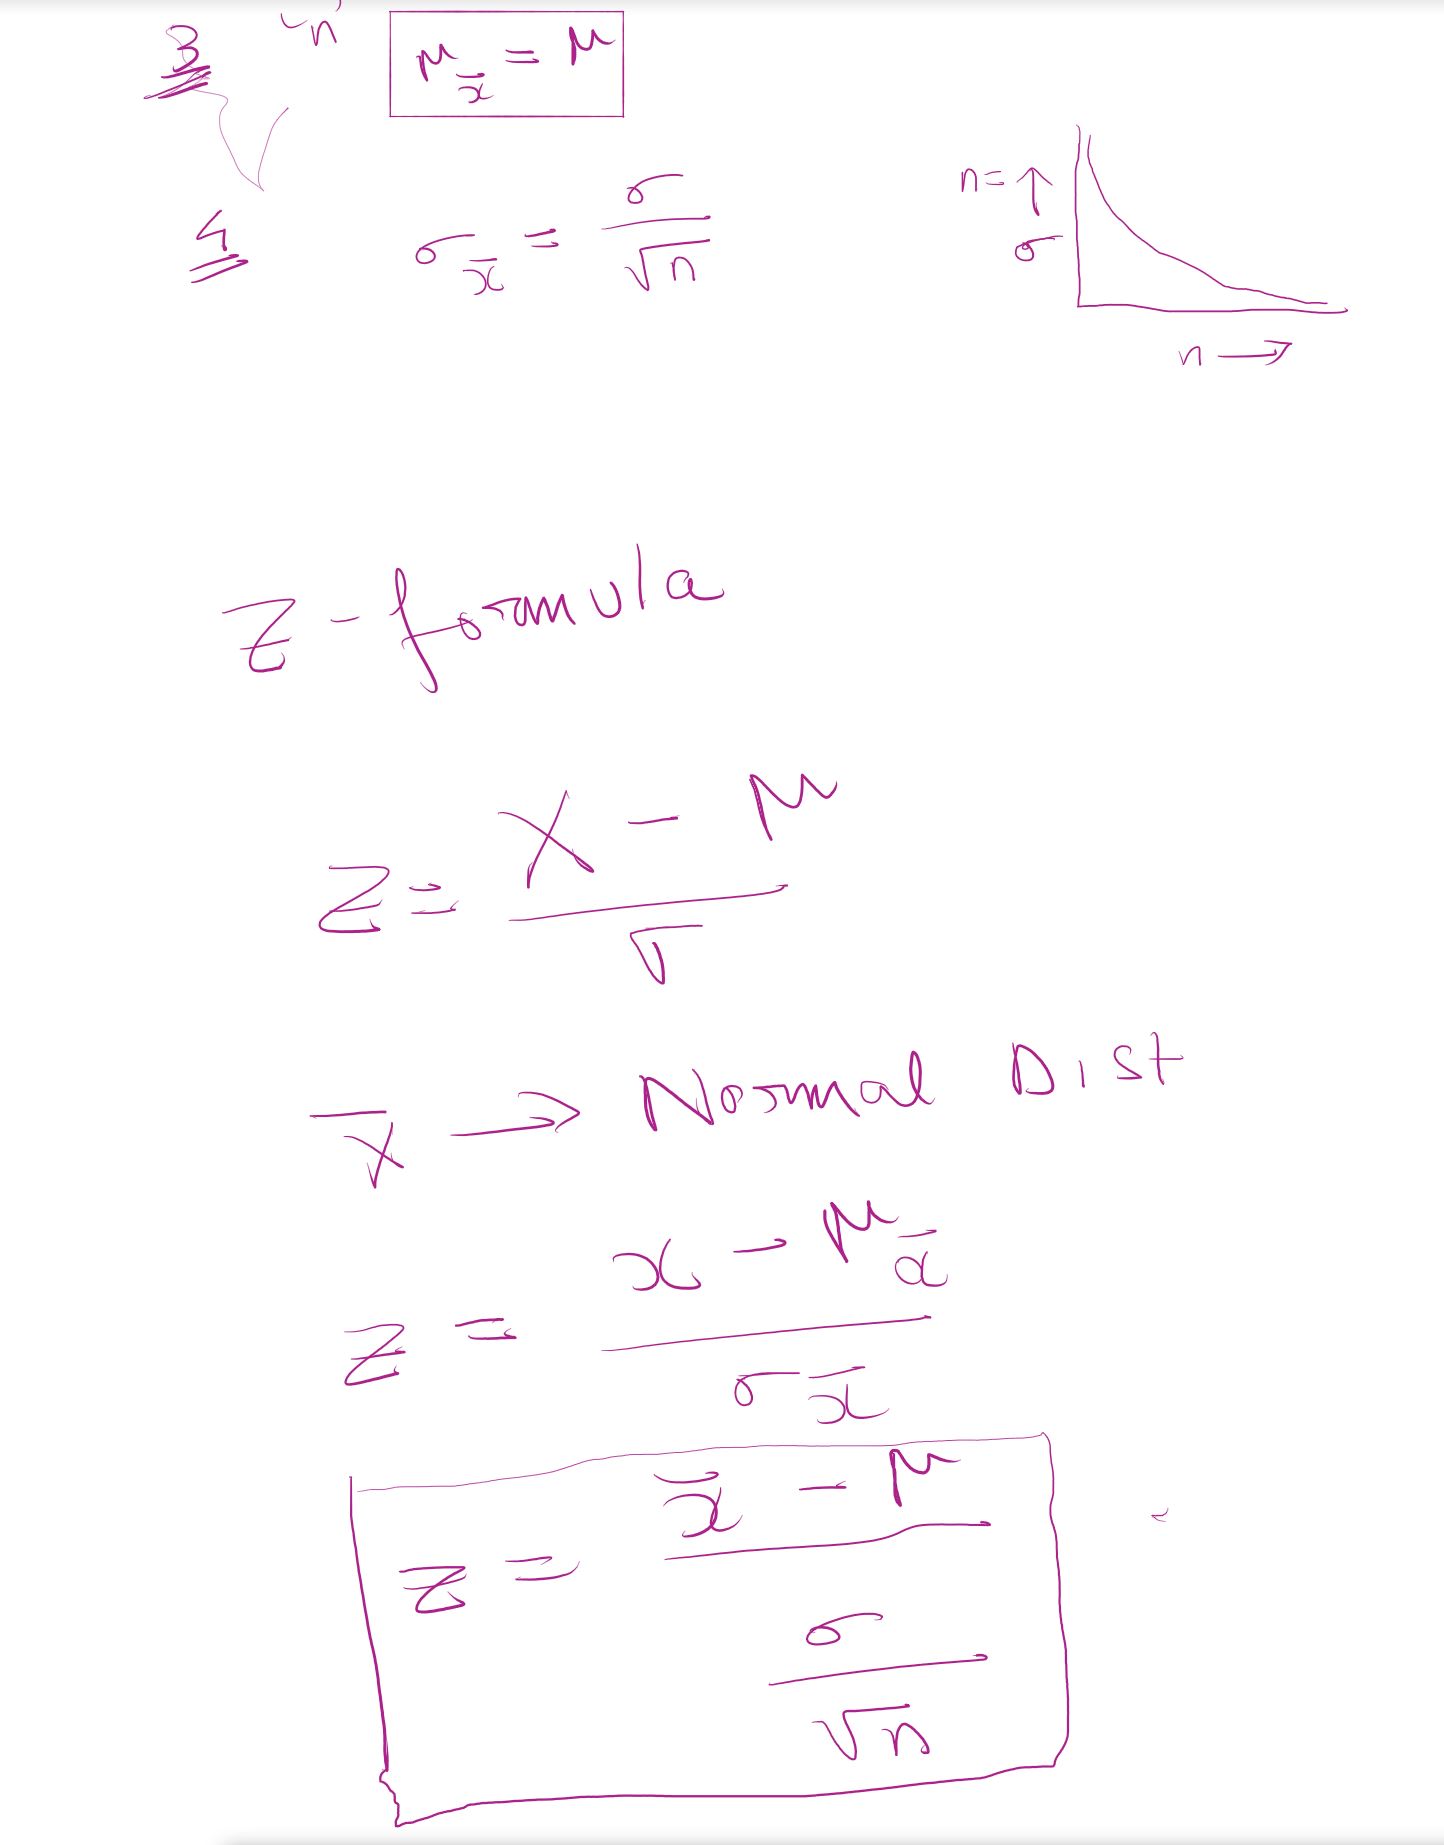 3 'n' μ_x̄ = μ
4 σ_x̄ = σ/√n
n = ↑
σ
n →
Z - formula
Z = (X - μ)/σ
x̄ → Normal Dist
Z = (x - μ_x̄)/σ_x̄
Z = (x̄ - μ)/(σ/√n)